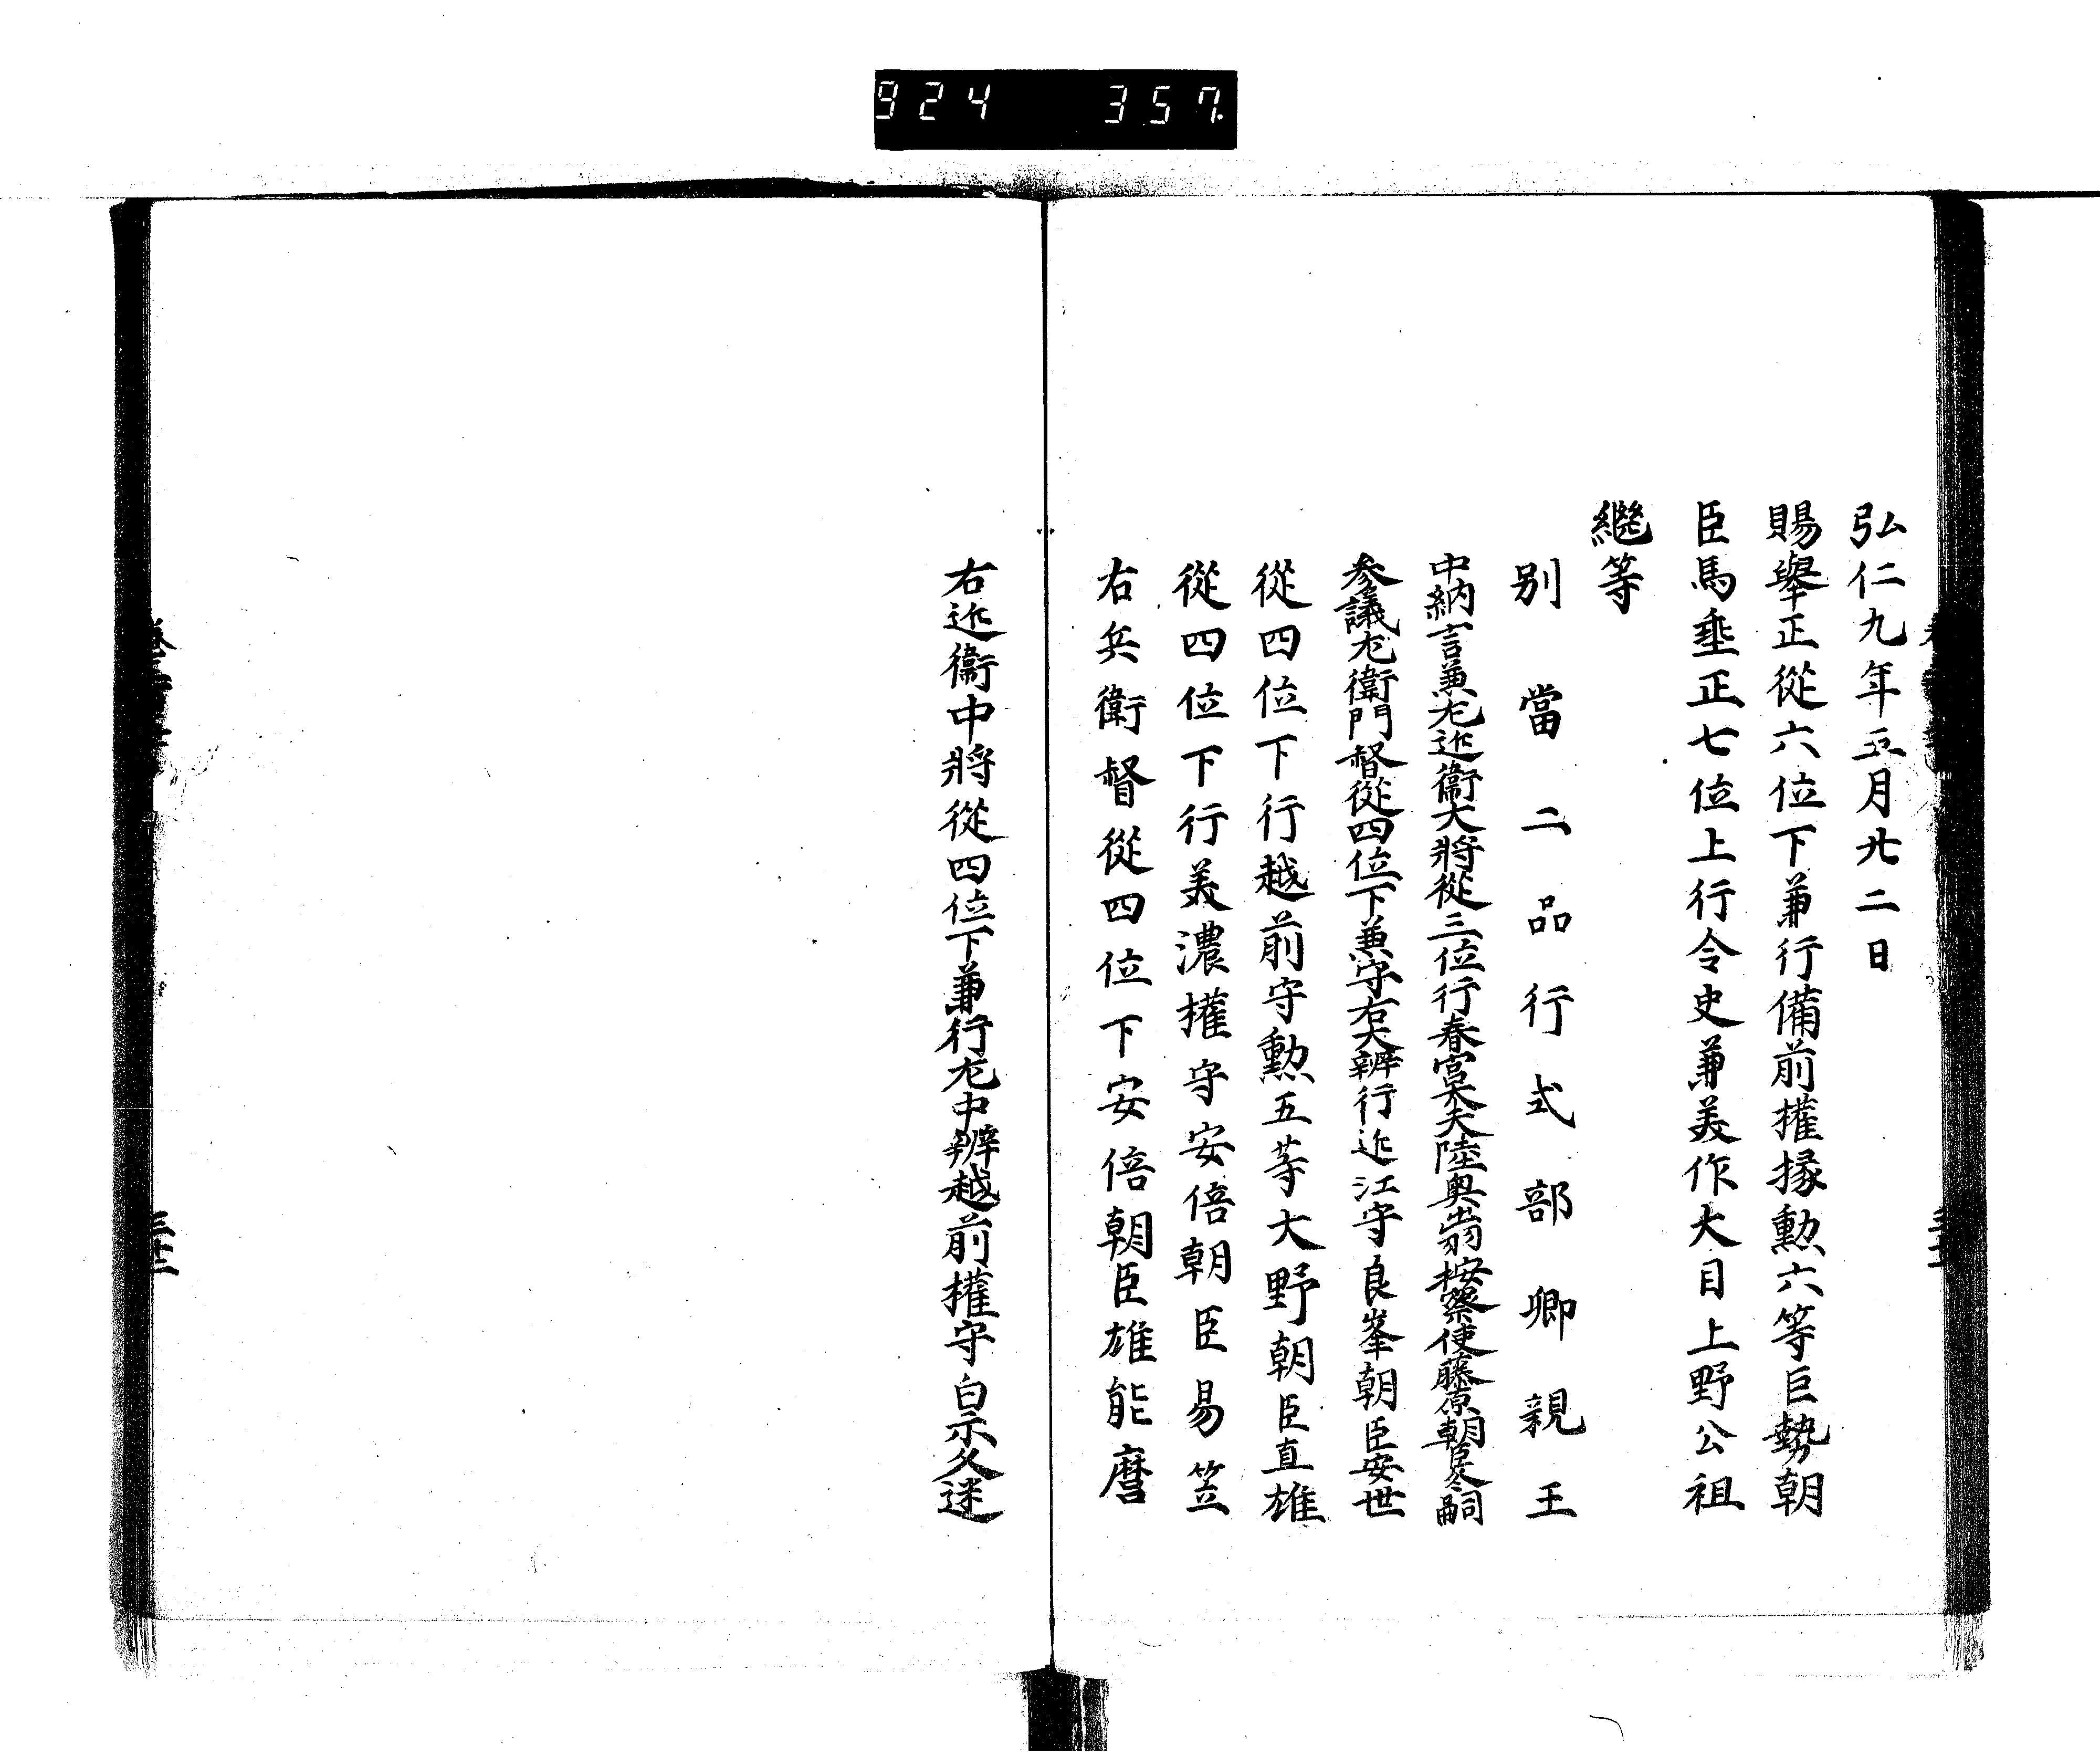 924 357
弘仁九年五月廿二日
賜舉正從六位下兼行備前權掾勲六等巨勢朝
臣馬乗正七位上行令史兼美作大目上野公祖
繼等
別當二品行式部卿親王
中納言兼左近衞大將從三位行春宮大夫陸奥出羽按察使藤原朝臣冬嗣
参議左衛門督從四位下兼守右大辨行近江守良峯朝臣安世
從四位下行越前守勲五等大野朝臣直雄
從四位下行美濃權守安倍朝臣易笠
右兵衛督從四位下安倍朝臣雄能麿
右近衞中將從四位下兼行左中辨越前權守